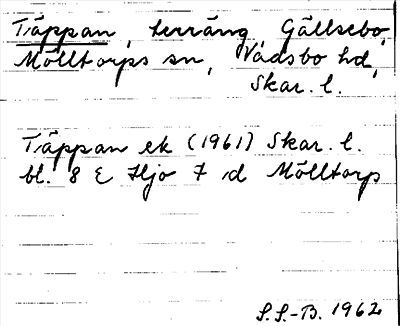 Täppan, terräng, Gällsebo,
Mölltorps sn, Vadsbo hd,
Skar. l.
Täppan ek (1961) Skar. l.
bl. 8 E Hjo 7 d Mölltorp
S.S.-B. 1962